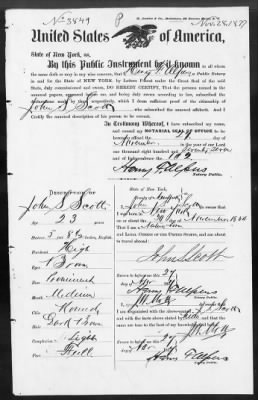 No. 3849
Nov. 28, 1877
United States of America,
State of New York, ss.
By this Public Instrument be it known to all whom
the same doth or may in any wise concern, that I Henry F. Alpers Public Notary
in and for the State of NEW YORK, by Letters Patent under the Great Seal of the said
State, duly commissioned and sworn, DO HEREBY CERTIFY, that the persons named in
the annexed papers, appeared before me, and being duly sworn according to law, subscribed the
statements made by them respectively, which I deem sufficient proof of the citizenship of
John S Scott who subscribed the annexed affidavit. And I
Certify the annexed description of his person to be correct.
In Testimony Whereof, I have subscribed my
name and caused my NOTARIAL SEAL OF OFFICE
to be hereunto affixed the 27 day of
November in the year of our Lord
one thousand eight hundred and Seventy Seven
and of Independence the 102
Henry F Alpers
Notary Public.
DESCRIPTION OF
John S. Scott
Age, 23 years
Stature, 5 ft 8½ inches, English
Forehead, High
Eyes, Brown
Nose, Prominent
Mouth, Medium
Chin, Round
Hair, Dark Brown
Complexion, Light
Face, Full
State of New York,
John S. Scott
New York
November 1854
John S Scott
Sworn to before me this 27
day of Nov 1877
Henry F Alpers
Notary Public.
I am acquainted with the above named J. S. Scott
and with the facts above stated by him, and that the
same are true to the best of my knowledge and belief.
Sworn to before me this 27
day of Nov 1877
Henry F Alpers
Notary Public.